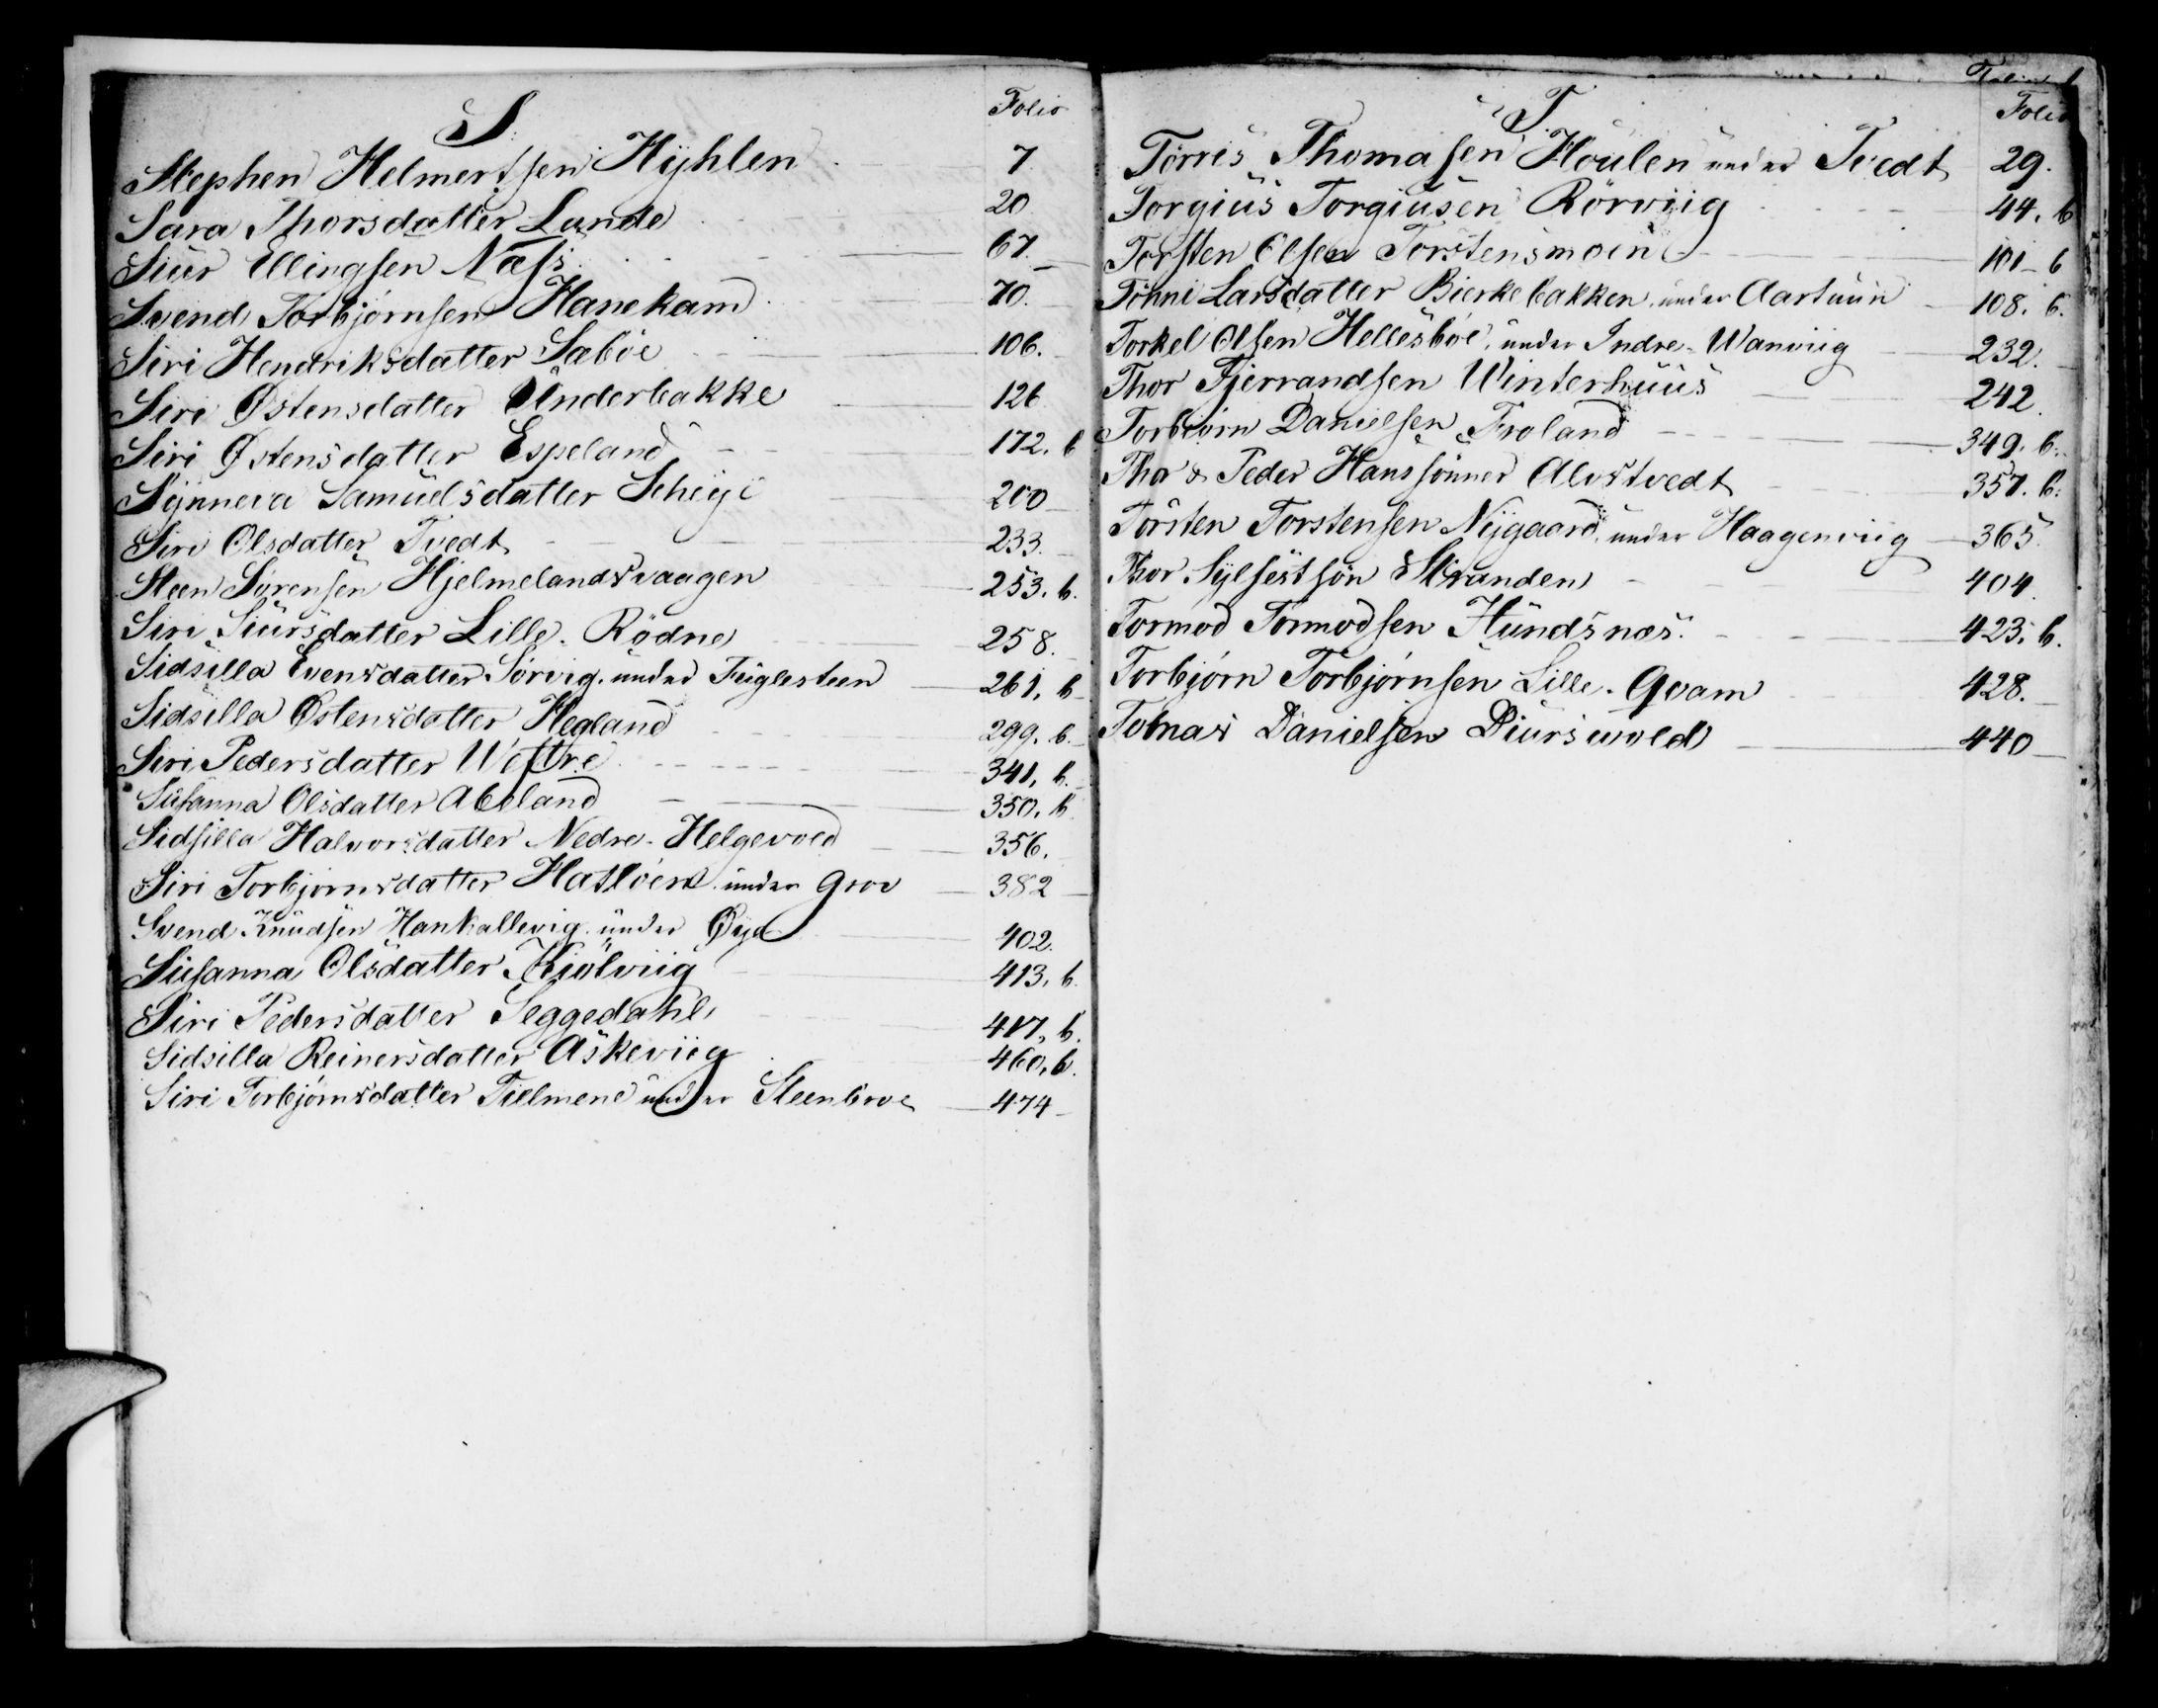 S.
Folio
Stephen Helmertsen Hÿhlen 7.
Sara Thorsdatter Lande 20
Siur Ellingsen Næss 67.
Svend Torbjørnsen Hanekam 70.
Siri Hendriksdatter Sæbøe 106.
Siri Østensdatter Underbakke 126
Siri Østensdatter Espeland 172. b
Synneva Samuelsdatter Scheije 200
Siri Olsdatter Tvedt 233.
Steen Sørensen Hjelmelandsvaagen 253. b.
Siri Siursdatter Lille-Rødne 258.
Sidsilla Evensdatter Sørvig under Fuglesteen 261. b
Sidsilla Østensdatter Hegland 299. b.
Siri Pedersdatter Westre 341. b.
Susanna Olsdatter Abeland 350. b
Sidsilla Halvorsdatter Nedre-Helgevold 356.
Siri Torbjørnsdatter Hasløen under Grov 382
Svend Knudsen Hankallevig under Øye 402.
Susanna Olsdatter Kjølviig 413. b.
Siri Pedersdatter Seggedahl 417. b.
Sidsilla Reinersdatter Askeviig 460. b.
Siri Torbjørnsdatter under Steenbroe 474
T.
Folio
Torris Thomasen Houlen under Tvedt 29.
Torgius Torgiusen Rørviig 44. b
Torsten Olsen Torstensmoen 101 b
Tønni Larsdatter Bierkebakken under Aartuun 108. b.
Torkel Olsen Hellesbøe, under Indre-Wanviig 232.
Thor Fjerrandsen Winterhuus 242.
Torbiørn Danielsen Froland 349. b.
Thor & Peder Hanssønner Alvstvedt 357. b.
Torsten Torstensen Nÿgaard, under Haagenviig 365.
Thor Sylfestsøn Stranden 404.
Tormod Tormodsen Hundsnæs. 423. b.
Torbjørn Torbjørnsen Lille-Qvam 428.
Danielsen Diurswold 440